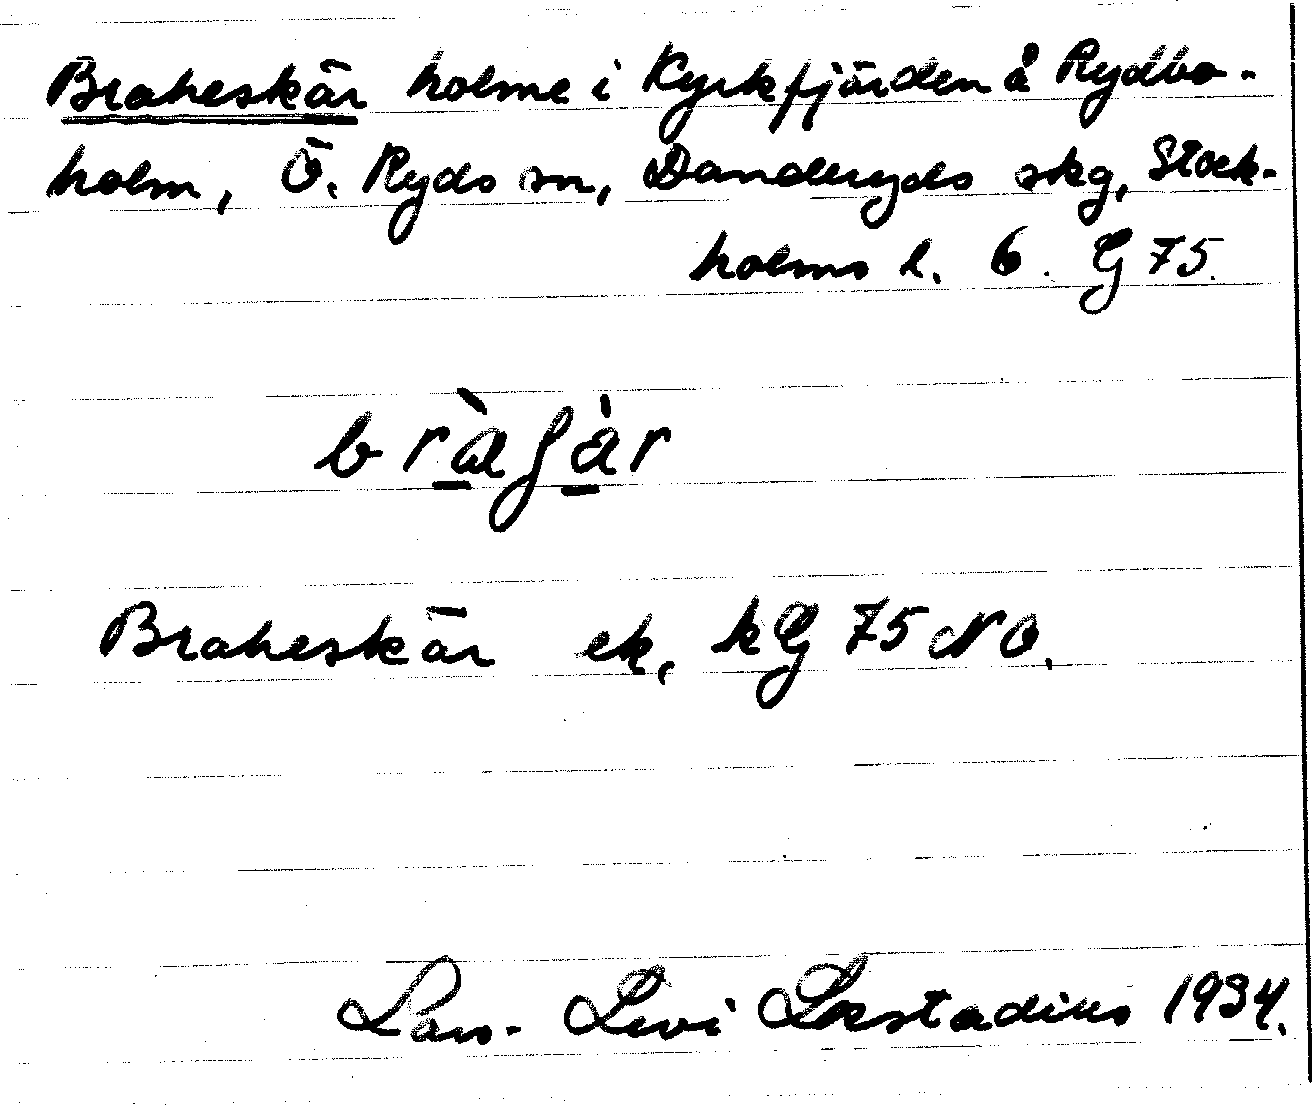 Braheskär holme i Kyrkfjärden å Rydbo-
holm, Ö. Ryds sn, Danderyds skg, Stock-
holms l. 6. G 75.
Braheskär ek, kG 75 NO.
Lars-Levi Læstadius 1934.